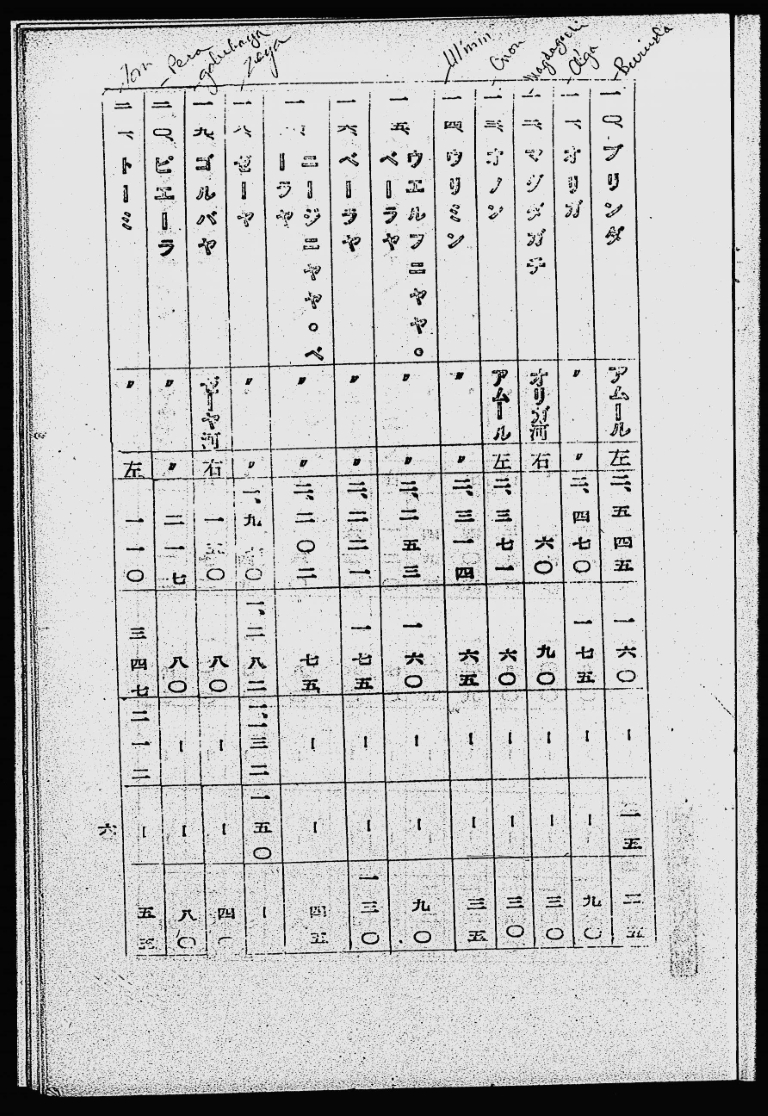 Tom
Pera
Zeya
Ulmin
Onon
Magdagachi
Olga
Burinda
一〇、ブリンダ アムール 左 二、五四五 一六〇 ー 一五 二五
一一、オリガ 〃 〃 二、四七〇 一七五 ー ー 九〇
一二、マグダガチ オリガ河 右 六〇 九〇 ー ー 三〇
一三、オノン アムール 左 二、三七一 六〇 ー ー 三〇
一四、ウリミン 〃 〃 二、三一四 六五 ー ー 三五
一五、ウエルフニヤヤ。ベーラヤ 〃 〃 二、二五三 一六〇 ー ー 九〇
一六、ベーラヤ 〃 〃 二、二二一 一七五 ー ー 一三〇
ニージニヤヤ。ベーラヤ 〃 〃 二、二〇二 七五 ー ー 四五
一八、ゼーヤ 〃 〃 一、二八二 一五〇 ー
一九、ゴルバヤ ゼーヤ河 右 八〇 ー ー
二〇、ピエーラ 〃 〃 二一七 八〇 ー ー 八〇
二一、トーミ 〃 左 一一〇 三四七 二一二 ー
六